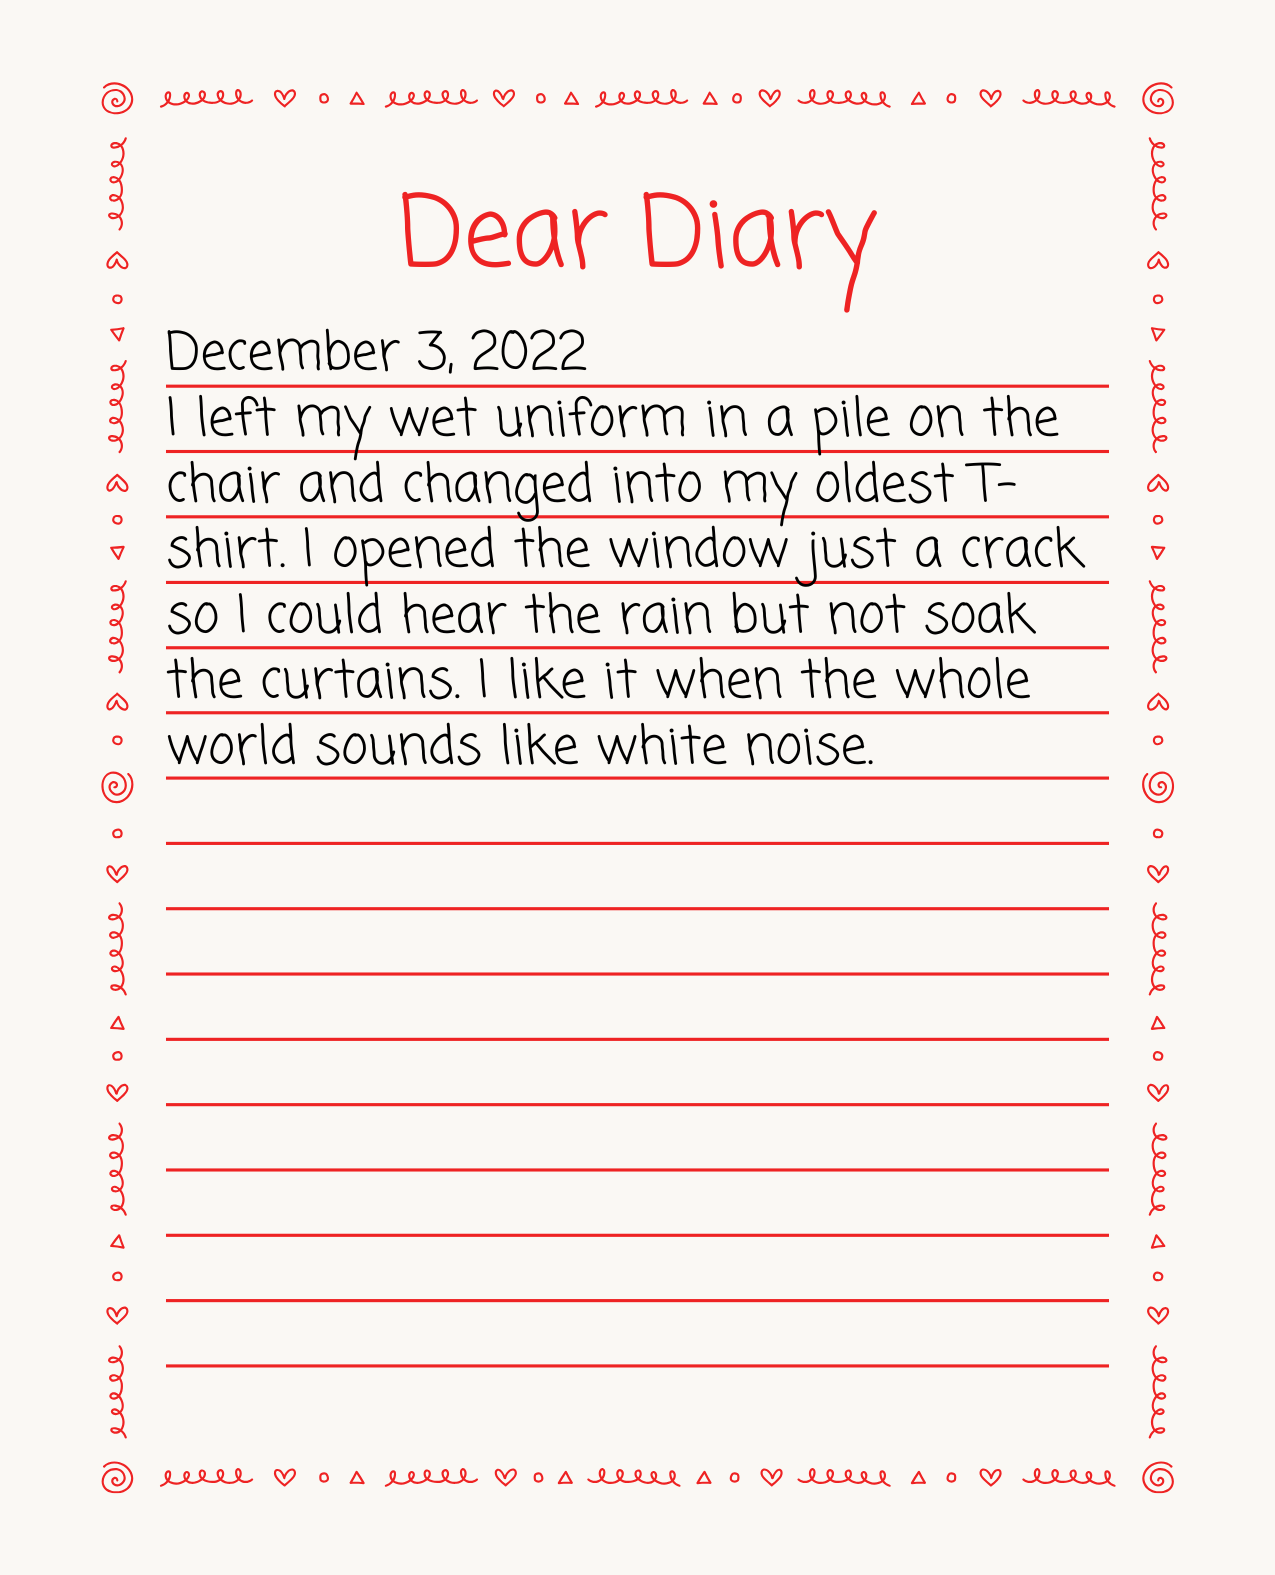 Dear Diary
December 3, 2022
I left my wet uniform in a pile on the
chair and changed into my oldest T-
shirt. I opened the window just a crack
so I could hear the rain but not soak
the curtains. I like it when the whole
world sounds like white noise.